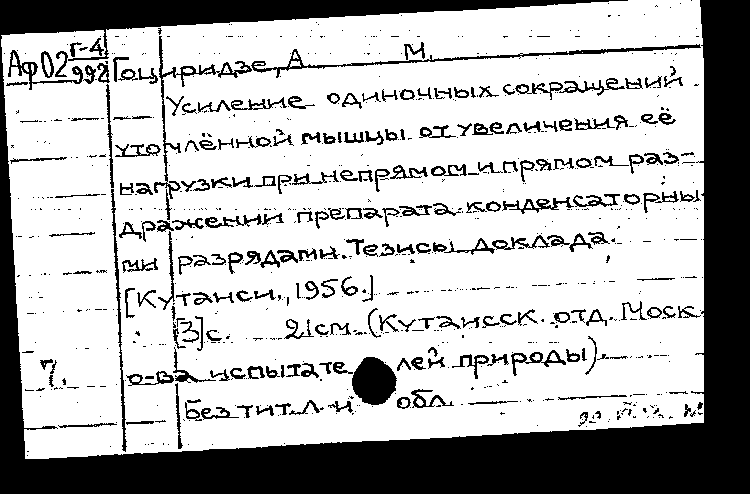 АфО2 Г-4/992 Гоциридзе, А. М.
Усиление одиночных сокращений
утомлённой мышцы от увеличения её
нагрузки при непрямом и прямом раз-
дражении препарата конденсаторны-
ми разрядами. Тезисы доклада.
[Кутаиси, 1956.]
[3]с. 21см. (Кутаисск. отд. Моск.
7. о-ва испытателей природы).
Без тит. л. и обл.